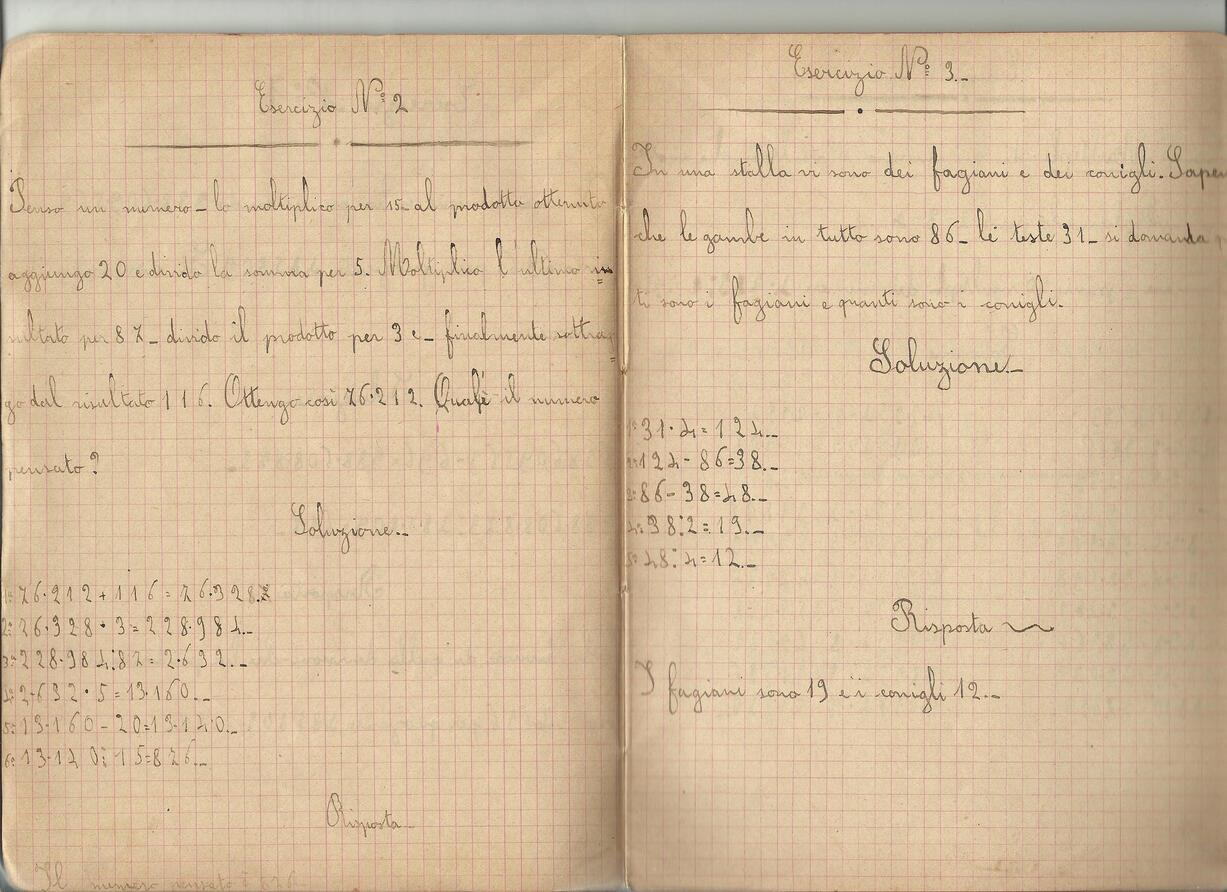 Esercizio Nº 2
Penso un numero_ lo moltiplico per 15_ al prodotto ottenuto
aggiungo 20 e divido la somma per 5. Moltiplico l'ultimo ri=
sultato per 87_ divido il prodotto per 3 e_ finalmente sottra=
go dal risultato 116. Ottengo così 76·212. Qual'è il numero
pensato?
Soluzione._
1º 76·212 + 116 = 76·328._
2º 76·328 · 3 = 228·984._
3º 228·984:87 = 2·632._
4º 2·632 · 5 = 13·160._
5º 13·160 - 20=13·140._
6º 13·140:15=876._
Risposta_
Il numero pensato è 876
Esercizio Nº 3._
In una stalla vi sono dei fagiani e dei conigli. Sapen
che le gambe in tutto sono 86_ le teste 31_ si domanda
ti sono i fagiani e quanti sono i conigli.
Soluzione._
1º 31·4=124._
2º 124-86=38._
3º 86-38=48._
4º 38:2=19._
5º 48:4=12._
Risposta
I fagiani sono 19 e i conigli 12._